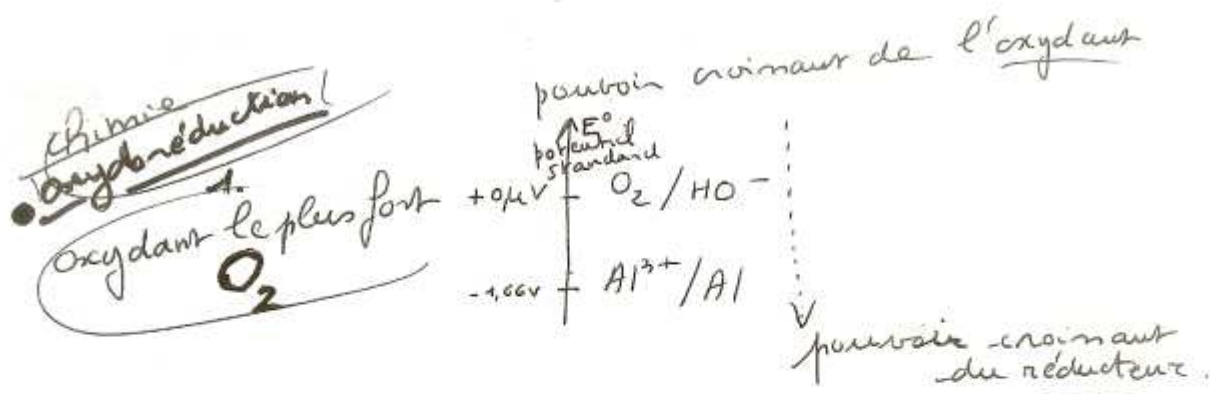 pouvoir croissant de l'oxydant
chimie
oxydoréduction
1.
oxydant le plus fort
O₂
E°
potentiel standard
+0,4V O₂ / HO⁻
-1,66V Al³⁺/Al
pouvoir croissant
du réducteur.